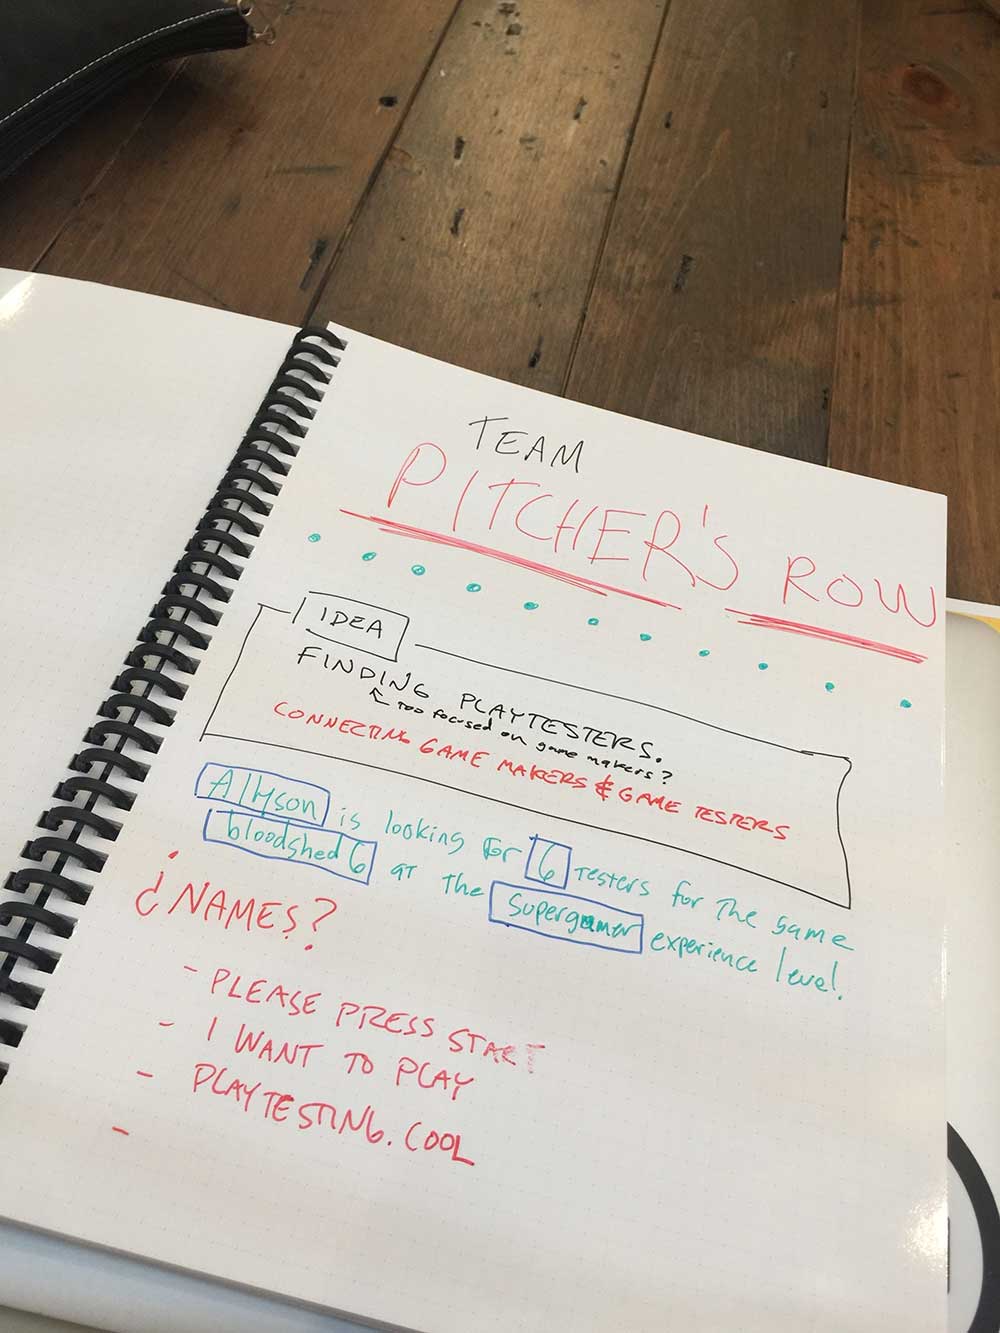 TEAM
PITCHER'S ROW
IDEA
FINDING PLAYTESTERS.
too focused on game makers?
CONNECTING GAME MAKERS & GAME TESTERS
Allyson is looking for 6 testers for the game
bloodshed 6 at the supergamer experience level.
¿NAMES?
- PLEASE PRESS START
- I WANT TO PLAY
- PLAYTESTING.COOL
-